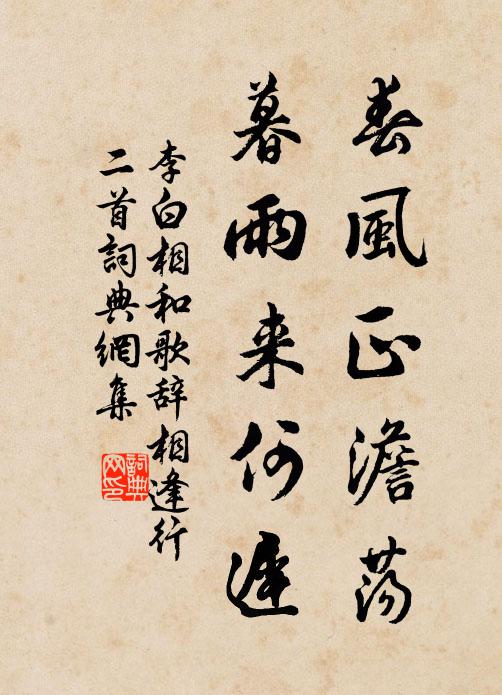 春風正澹蕩
暮雨来何遲
李白相和歌辞相逢行
二首詞典網集
詞典网印